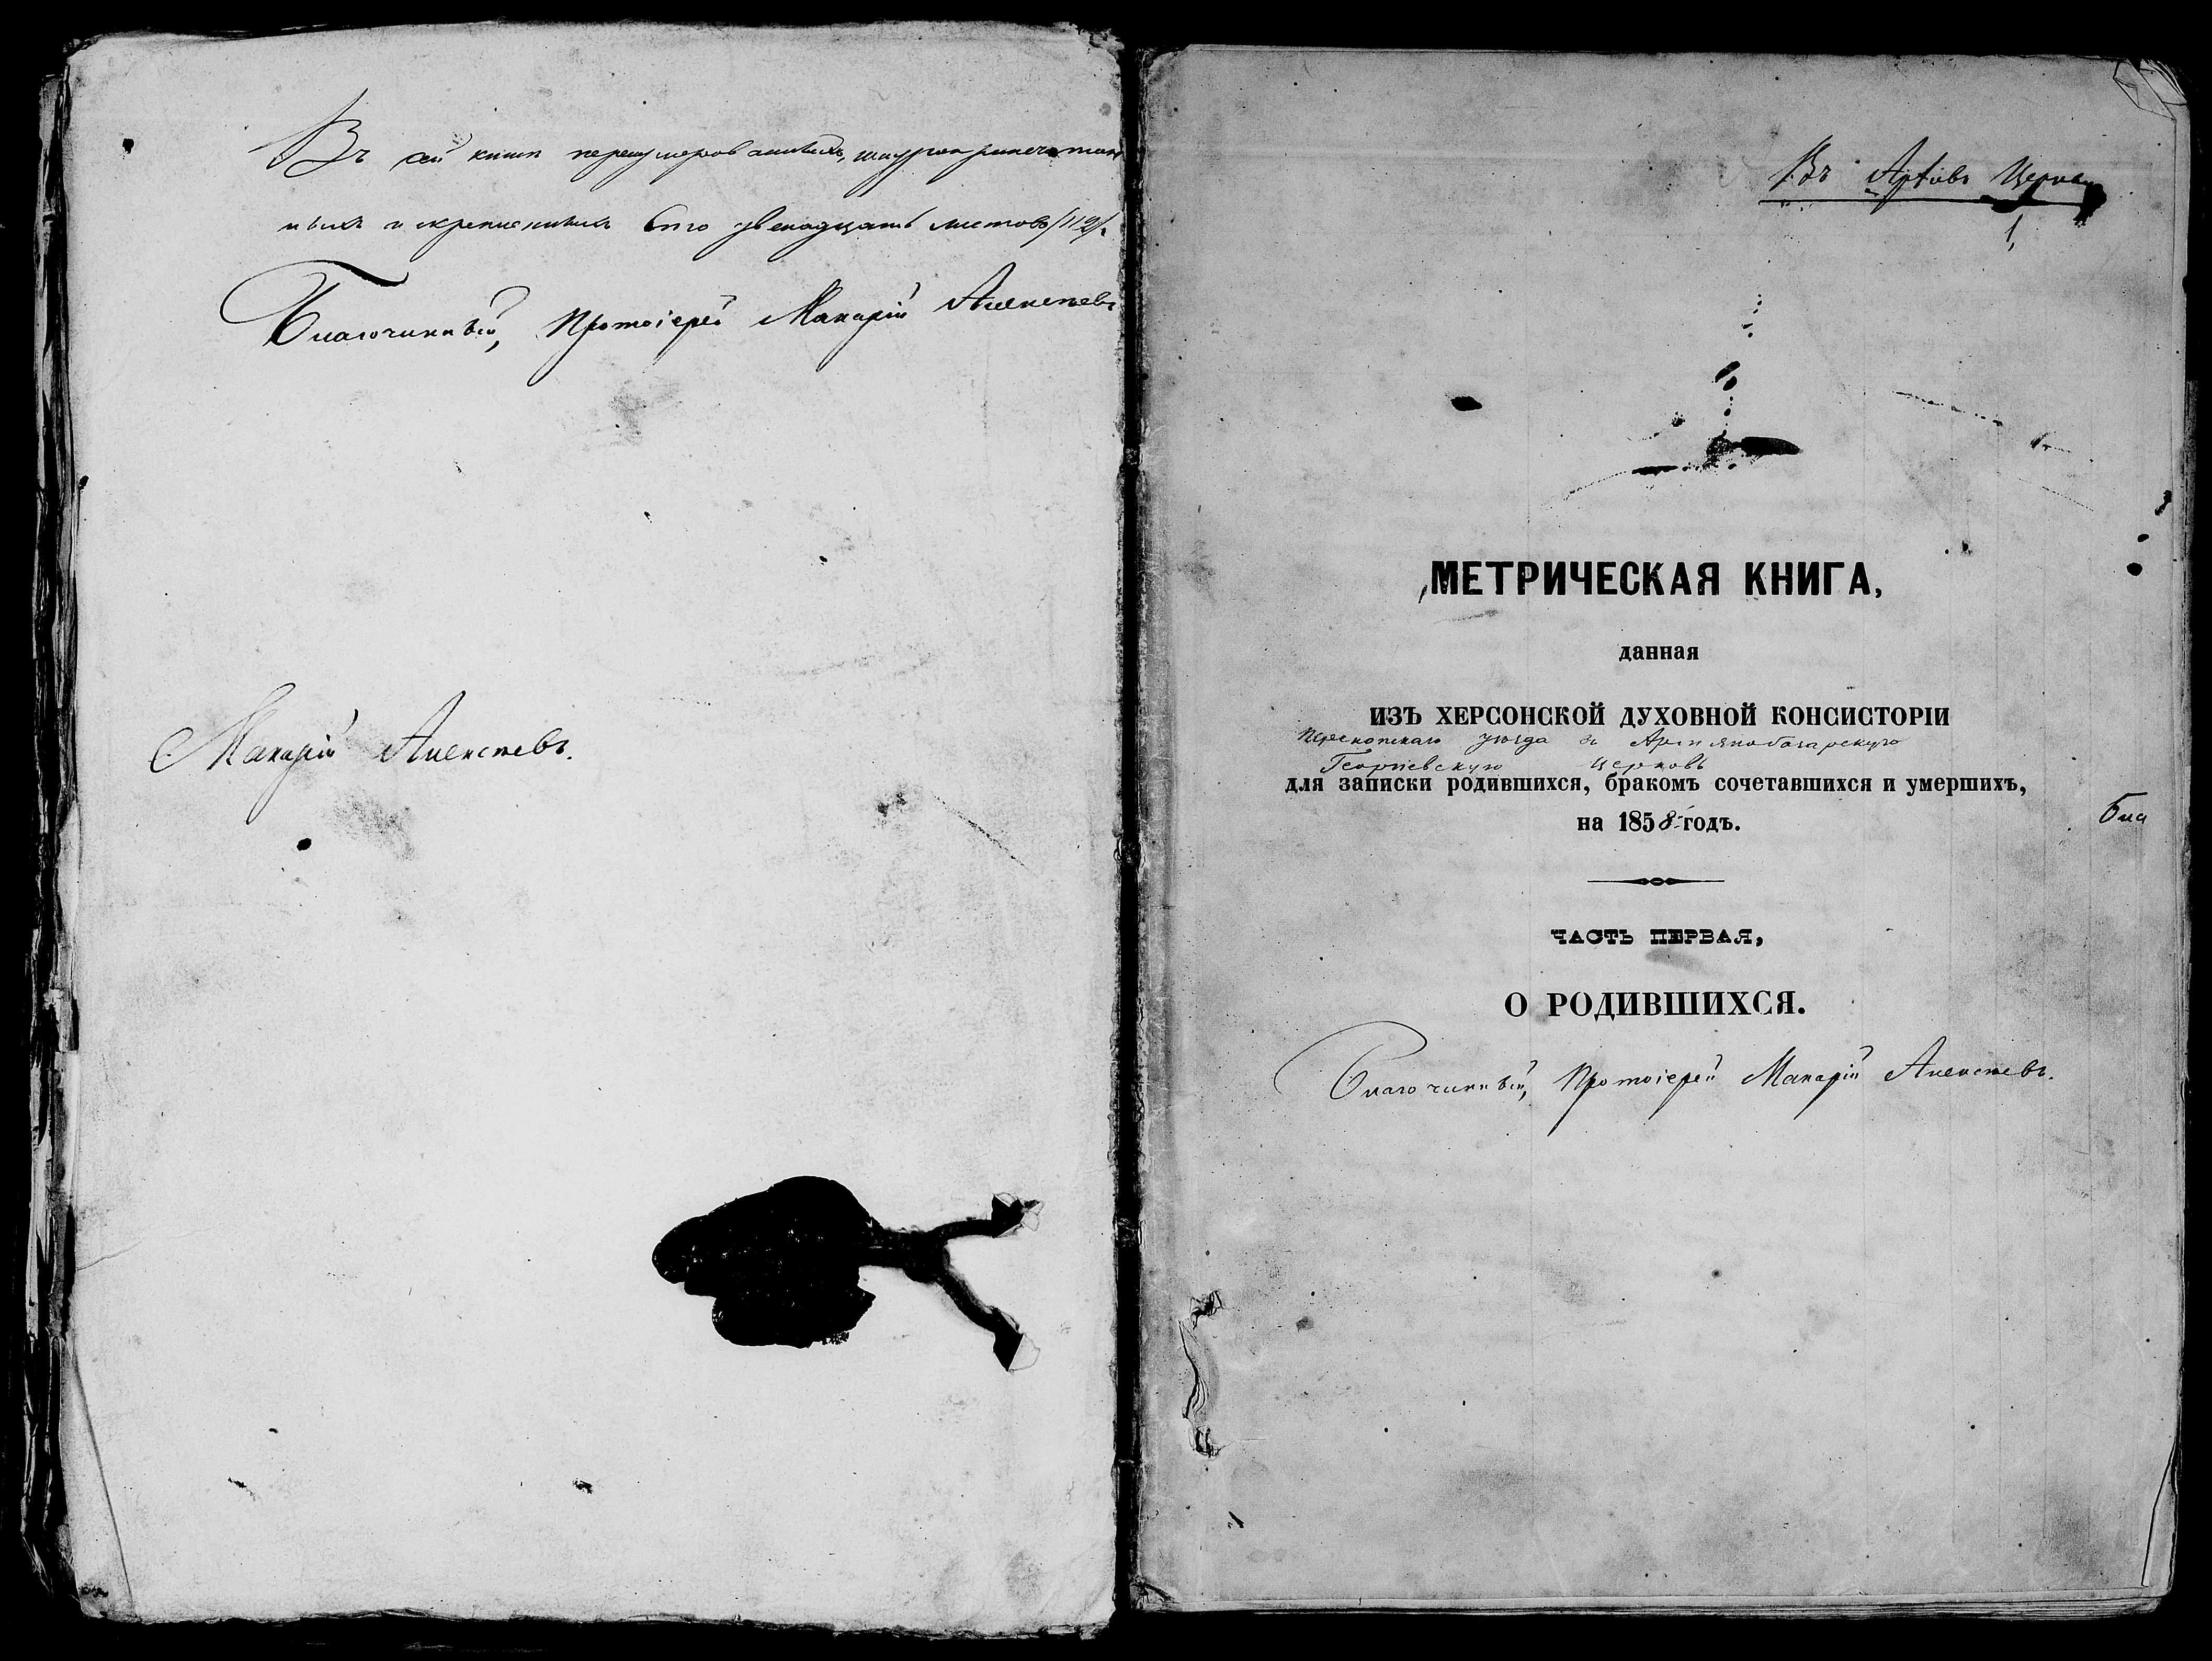 Въ сей книгѣ перенумерованныхъ, шнуроприпечатан
ныхъ и скрепленныхъ сто двенадцать листовъ /112/.
Благочинный, Протоіерей Макарій Алексѣевъ
Макарій Алексѣевъ.
Въ Архивъ Церкви
1,
МЕТРИЧЕСКАЯ КНИГА,
данная
ИЗЪ ХЕРСОНСКОЙ ДУХОВНОЙ КОНСИСТОРІИ
Перекопскаго уѣзда въ Армянобазарскую
Георгіевскую Церковь
для записки родившихся, бракомъ сочетавшихся и умершихъ,
на 1858 годъ.
Бла
ЧАСТЬ ПЕРВАЯ,
О РОДИВШИХСЯ.
Благочинный, Протоіерей Макарій Алексѣевъ.